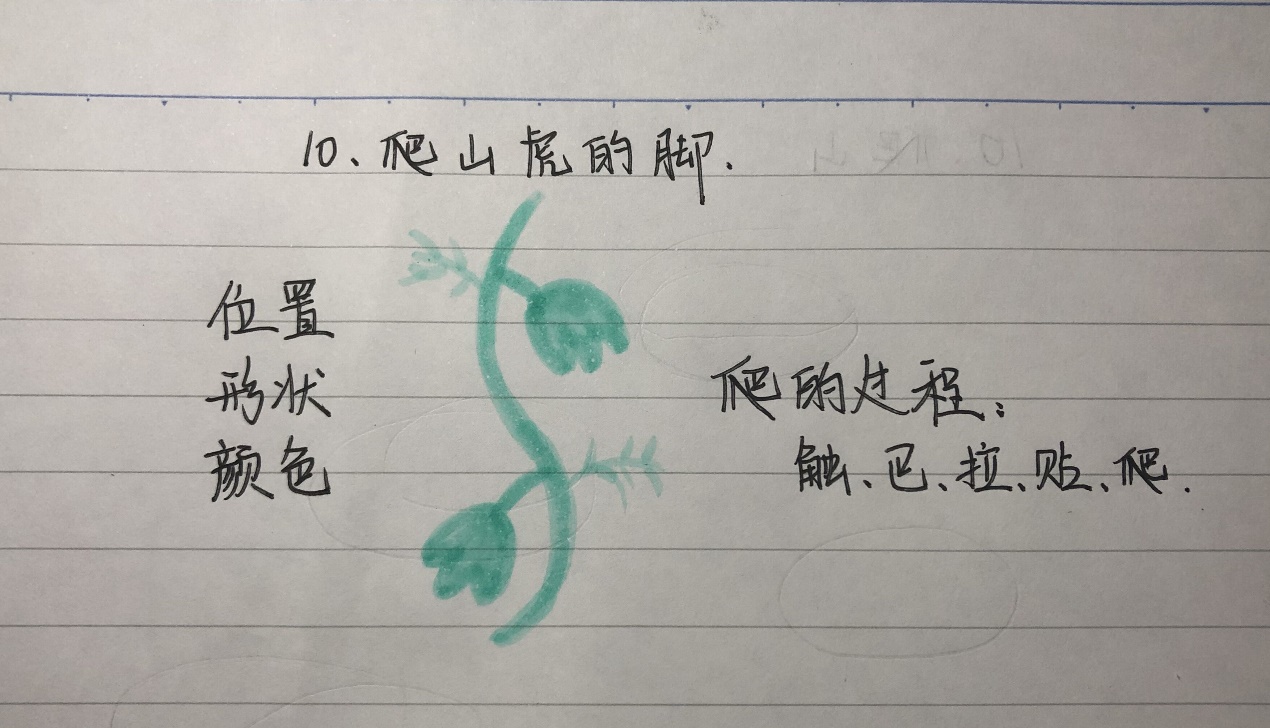 10、爬山虎的脚.
位置
形状
颜色
爬的过程：
触、巴、拉、贴、爬.